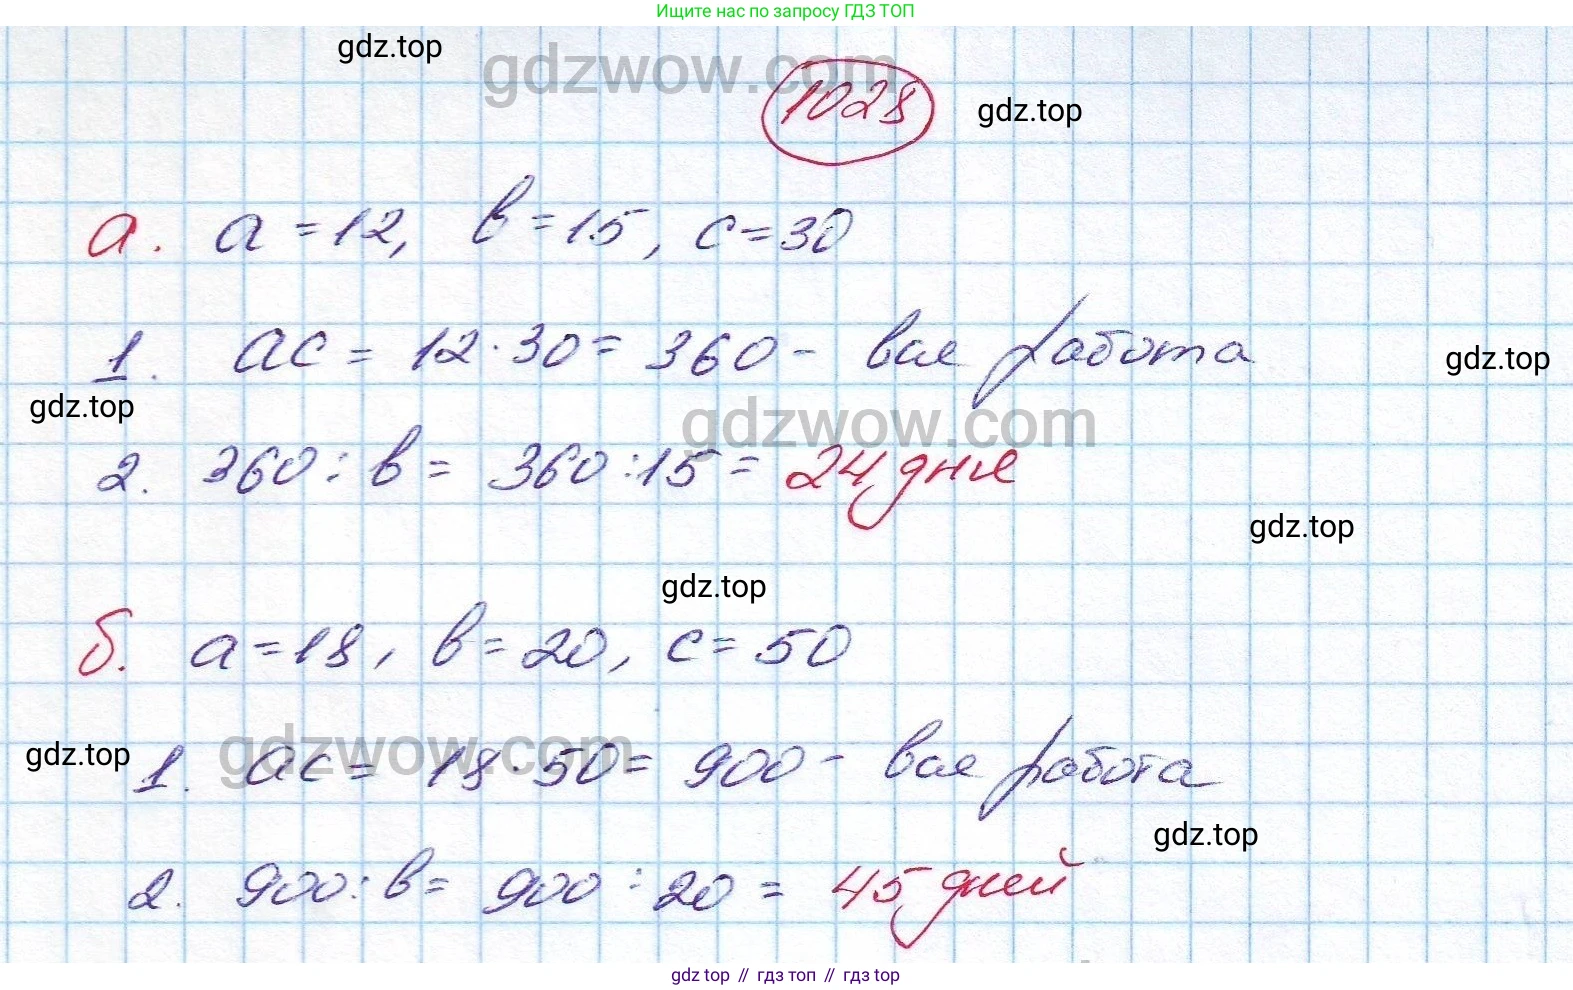 Ищите нас по запросу ГДЗ ТОП
gdz.top
gdzwow.com
1028
gdz.top
а. a = 12, b = 15, c = 30
1. ac = 12 · 30 = 360 - вся работа
gdz.top
gdz.top
gdzwow.com
2. 360 : b = 360 : 15 = 24 дня
gdz.top
gdz.top
б. a = 18, b = 20, c = 50
gdz.top
gdzwow.com
1. ac = 18 · 50 = 900 - вся работа
gdz.top
2. 900 : b = 900 : 20 = 45 дней
gdz top // гдз топ // гдз top